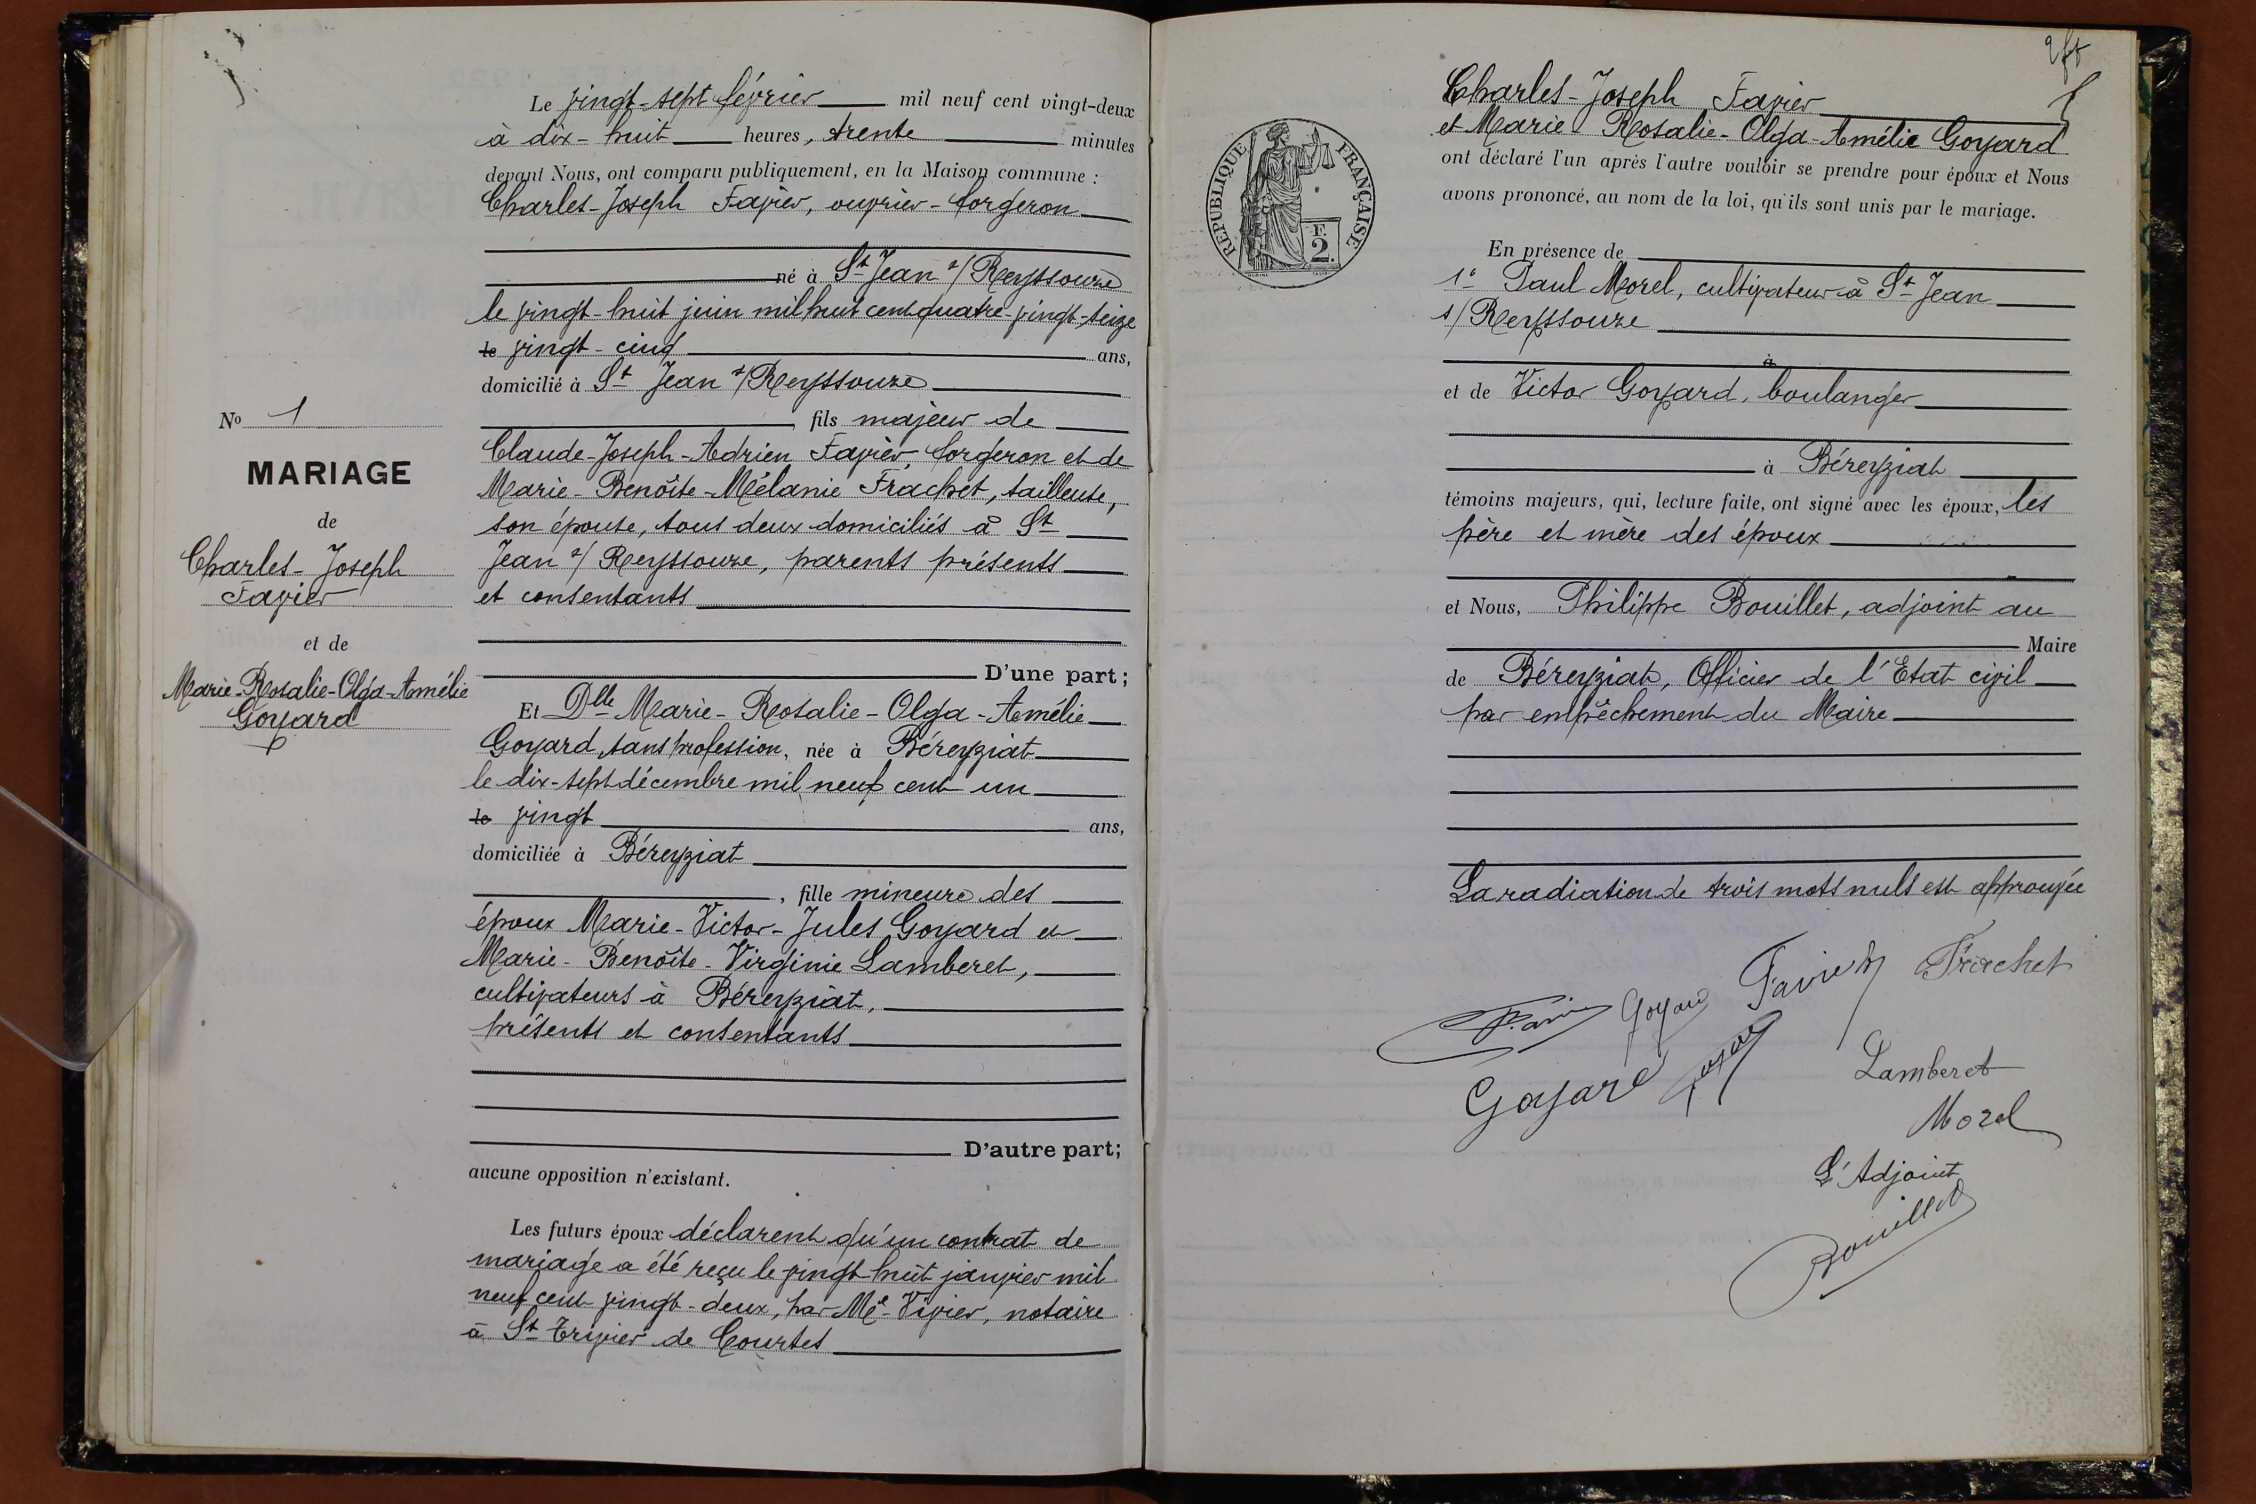 Le vingt-sept février mil neuf cent vingt-deux
à dix-huit heures, trente minutes
devant Nous, ont comparu publiquement, en la Maison commune :
Charles-Joseph Favier, ouvrier-forgeron
né à St Jean s/ Reyssouze
le vingt-huit juin mil huit cent quatre-vingt-seize
le vingt-cinq ans,
domicilié à St Jean s/ Reyssouze
fils majeur de
Claude-Joseph-Adrien Favier, forgeron et de
Marie-Benoîte-Mélanie Frachet, tailleuse,
son épouse, tous deux domiciliés à St
Jean s/ Reyssouze, parents présents
et consentants
D'une part;
Et Dlle Marie-Rosalie-Olga-Amélie
Goyard, sans profession, née à Béreyziat
le dix-sept décembre mil neuf cent un
le vingt ans,
domiciliée à Béreyziat
, fille mineure des
époux Marie-Victor-Jules Goyard et
Marie-Benoîte-Virginie Lamberet,
cultivateurs à Béreyziat,
présents et consentants
D'autre part;
aucune opposition n'existant.
Les futurs époux déclarent qu'un contrat de
mariage a été reçu le vingt-huit janvier mil
neuf cent vingt-deux, par Me Vivier, notaire
à St Trivier de Courtes
No 1
MARIAGE
de
Charles-Joseph
Favier
et de
Marie-Rosalie-Olga-Amélie
Goyard
Charles-Joseph Favier
et Marie Rosalie-Olga-Amélie Goyard
ont déclaré l'un après l'autre vouloir se prendre pour époux et Nous
avons prononcé, au nom de la loi, qu'ils sont unis par le mariage.
RÉPUBLIQUE FRANÇAISE
F
2.
En présence de
1° Paul Morel, cultivateur à St Jean
s/ Reyssouze
à
et de Victor Goyard, boulanger
à Béreyziat
témoins majeurs, qui, lecture faite, ont signé avec les époux, les
père et mère des époux
et Nous, Philippe Bouillet, adjoint au
Maire
de Béreyziat, Officier de l'Etat civil
par empêchement du Maire
La radiation de trois mots nuls est approuvée
Favier Frachet
Goyard
Goyard
Lamberet
Morel
L'Adjoint
Bouillet